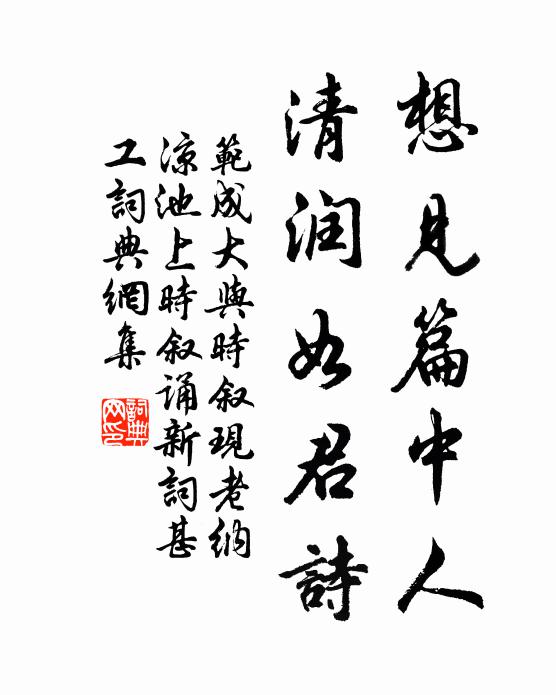 想見篇中人
清润如君詩
範成大與時叙現老納
涼池上時叙誦新詞甚
工詞典網集
詞典
网印